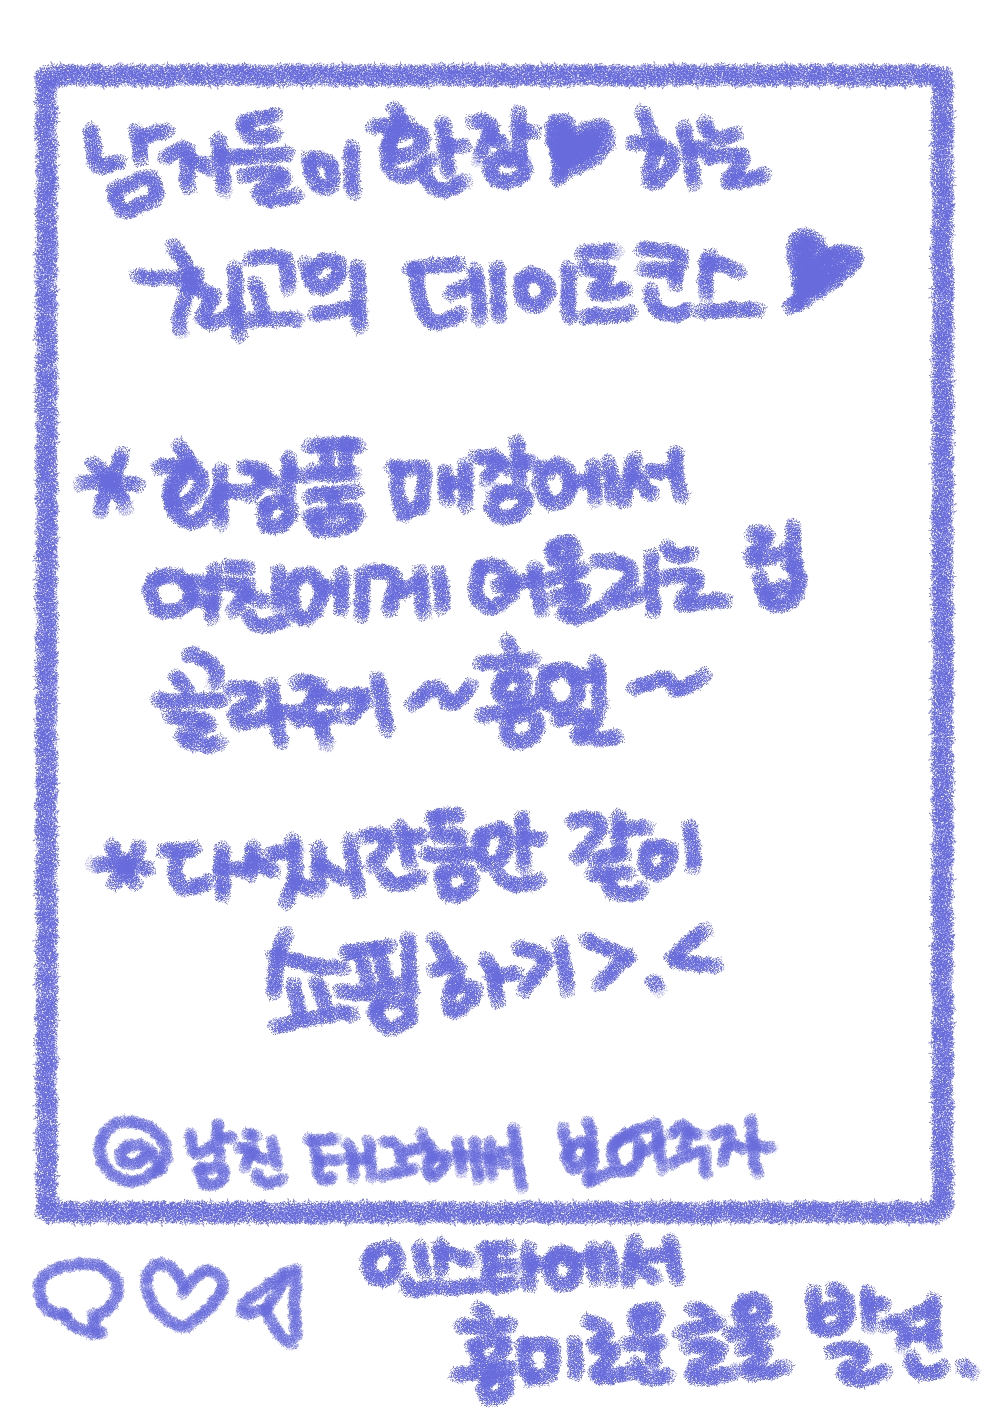 남자들이 환장♥하는
최고의 데이트코스♥
*화장품 매장에서
여친에게 어울리는 립
골라주기~홍열~
*다섯시간동안 같이
쇼핑하기>.<
@남친 태그해써 보여주자
인스타에서
흥미로운글을 발견.